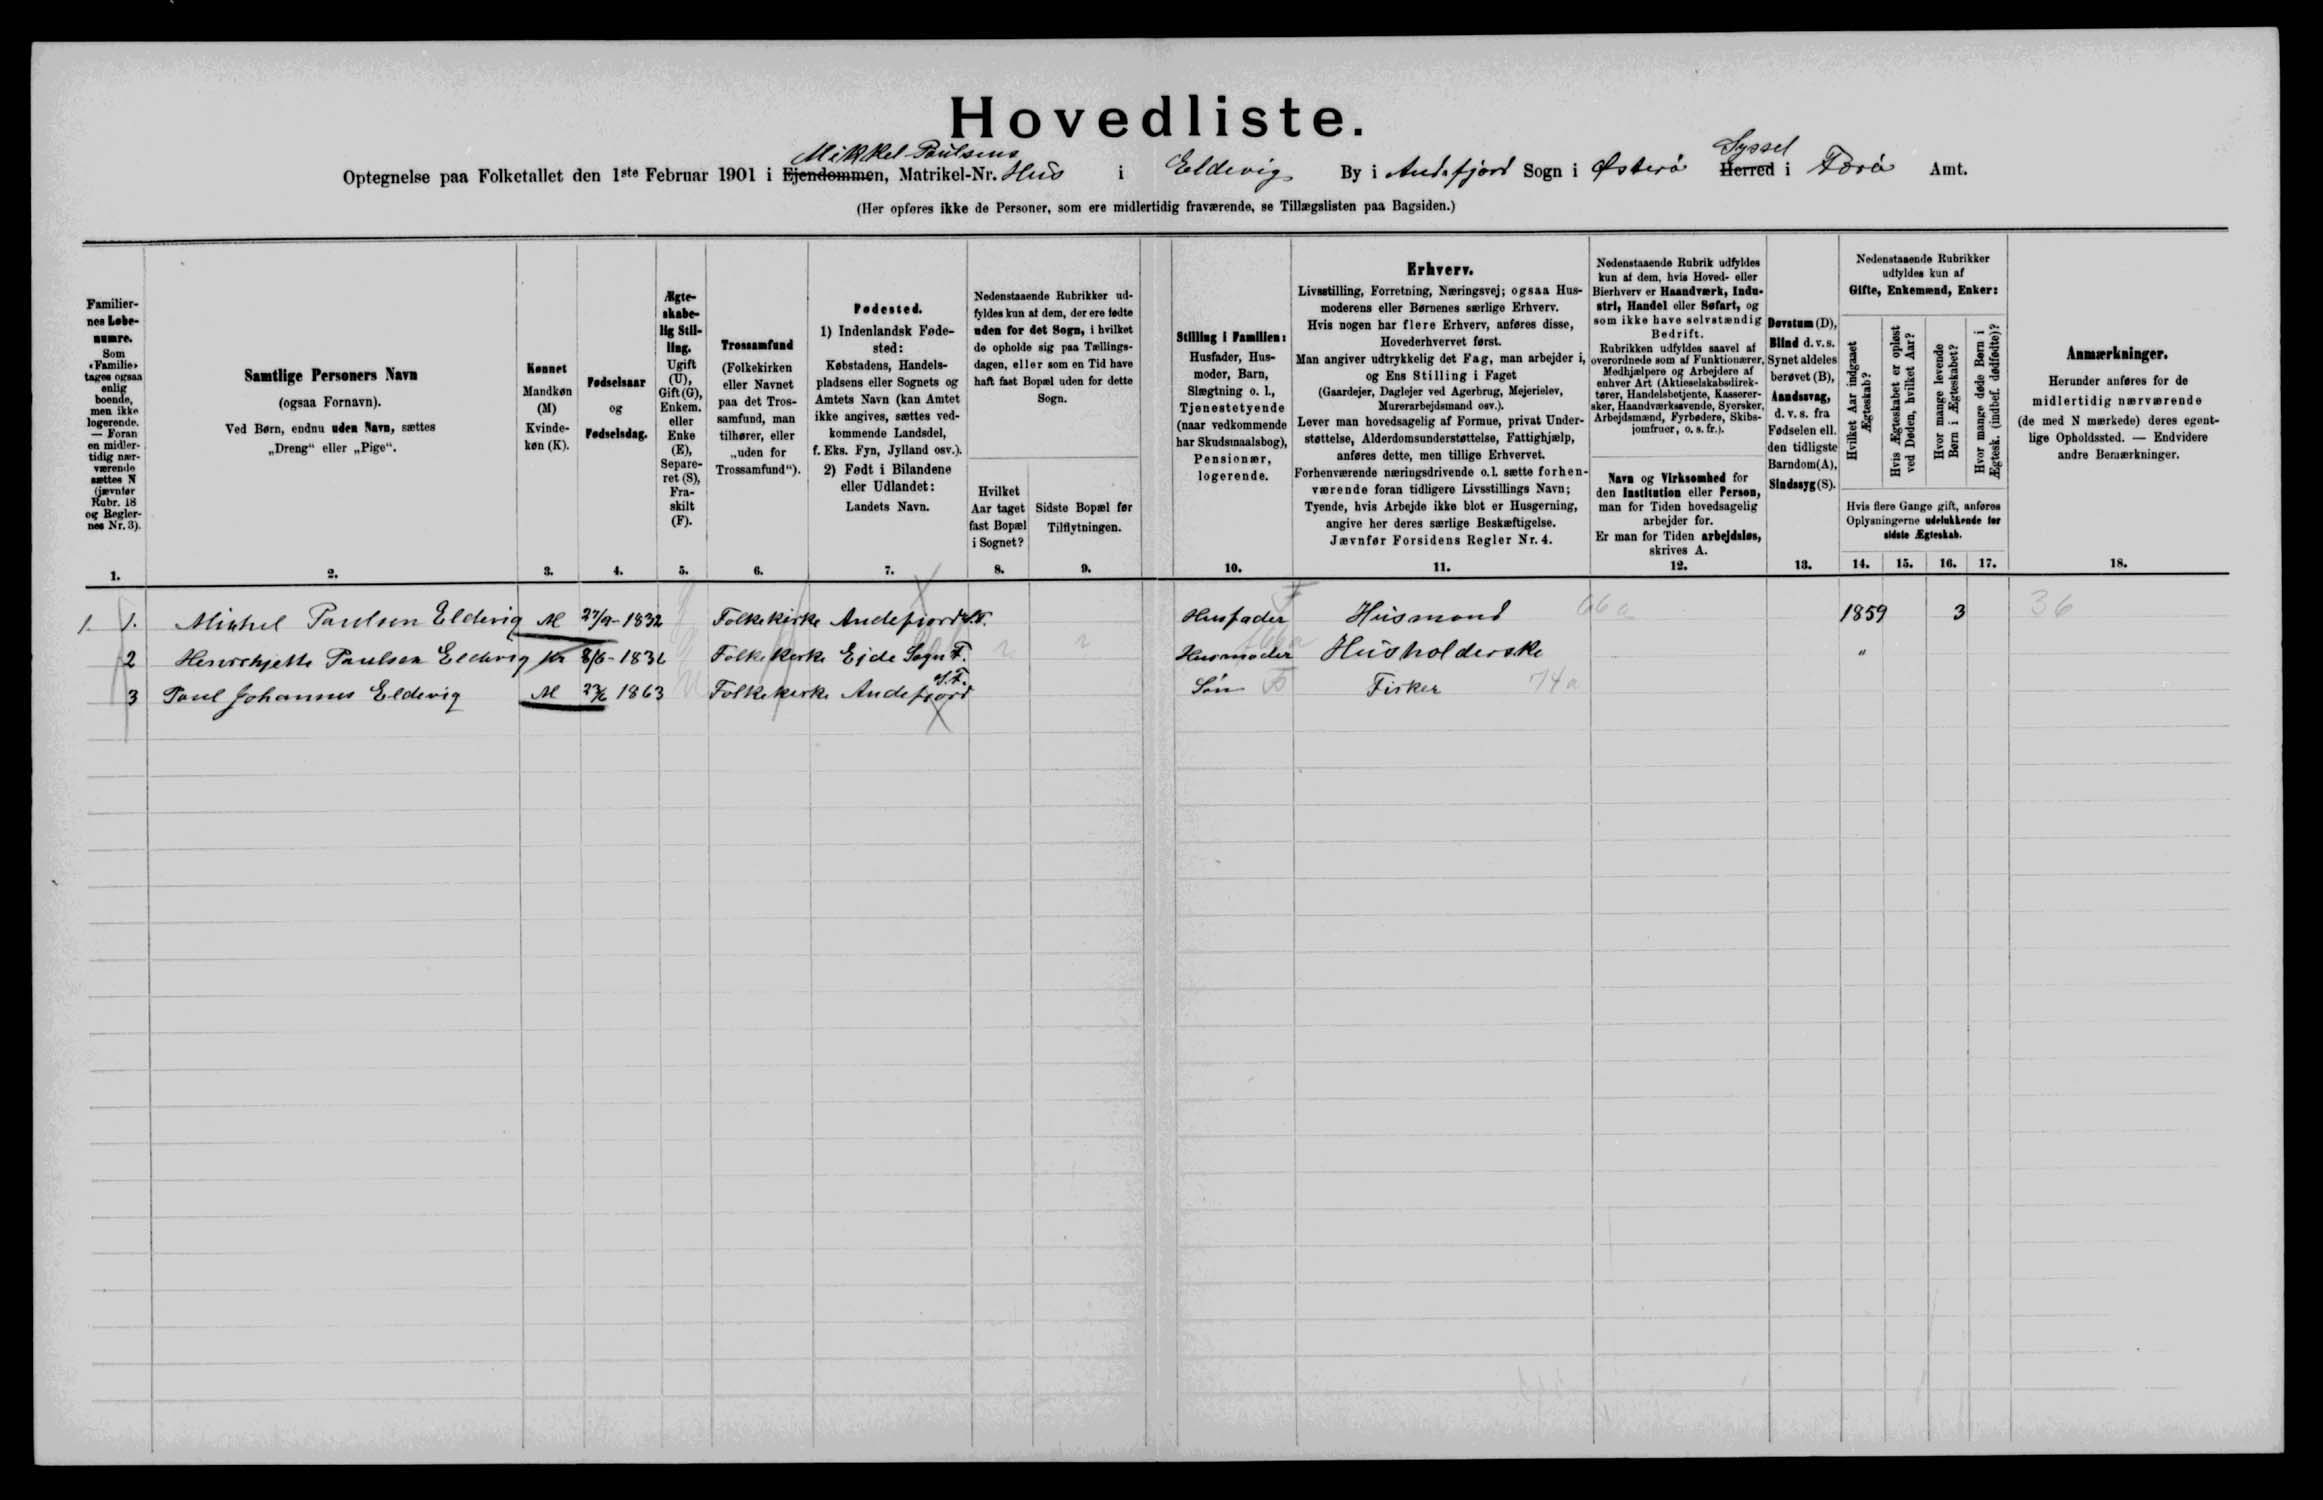 Hovedliste.
Mikkel Paulsens Syssel
Optegnelse paa Folketallet den 1ste Februar 1901 i Ejendommen, Matrikel-Nr. Hus i Eldevig By i Andefjord Sogn i Østerö Herred i Færö Amt.
(Her opføres ikke de Personer, som ere midlertidig fraværende, se Tillægslisten paa Bagsiden.)
Familiernes Løbenumre.
Som «Familie» tages ogsaa enlig boende, men ikke logerende. — Foran en midlertidig nærværende sættes N (jævnfør Rubr. 18 og Reglernes Nr. 3).
Samtlige Personers Navn
(ogsaa Fornavn).
Ved Børn, endnu uden Navn, sættes
„Dreng“ eller „Pige“.
Kønnet
Mandkøn (M)
Kvindekøn (K).
Fødselsaar
og
Fødselsdag.
Ægteskabelig Stilling.
Ugift (U), Gift (G), Enkem. eller Enke (E), Separeret (S), Fraskilt (F).
Trossamfund
(Folkekirken eller Navnet paa det Trossamfund, man tilhører, eller „uden for Trossamfund“).
Fødested.
1) Indenlandsk Fødested:
Købstadens, Handelspladsens eller Sognets og Amtets Navn (kan Amtet ikke angives, sættes vedkommende Landsdel, f. Eks. Fyn, Jylland osv.).
2) Født i Bilandene eller Udlandet:
Landets Navn.
Nedenstaaende Rubrikker udfyldes kun af dem, der ere fødte uden for det Sogn, i hvilket de opholde sig paa Tællingsdagen, eller som en Tid have haft fast Bopæl uden for dette Sogn.
Hvilket Aar taget fast Bopæl i Sognet?
Sidste Bopæl før Tilflytningen.
Stilling i Familien:
Husfader, Husmoder, Barn, Slægtning o. l., Tjenestetyende (naar vedkommende har Skudsmaalsbog), Pensionær, logerende.
Erhverv.
Livsstilling, Forretning, Næringsvej; ogsaa Husmoderens eller Børnenes særlige Erhverv.
Hvis nogen har flere Erhverv, anføres disse, Hovederhvervet først.
Man angiver udtrykkelig det Fag, man arbejder i, og Ens Stilling i Faget
(Gaardejer, Daglejer ved Agerbrug, Mejerielev, Murerarbejdsmand osv.).
Lever man hovedsagelig af Formue, privat Understøttelse, Alderdomsunderstøttelse, Fattighjælp, anføres dette, men tillige Erhvervet.
Forhenværende næringsdrivende o. l. sætte forhenværende foran tidligere Livsstillings Navn;
Tyende, hvis Arbejde ikke blot er Husgerning, angive her deres særlige Beskæftigelse.
Jævnfør Forsidens Regler Nr. 4.
Nedenstaaende Rubrik udfyldes kun af dem, hvis Hoved- eller Bierhverv er Haandværk, Industri, Handel eller Søfart, og som ikke have selvstændig Bedrift.
Rubrikken udfyldes saavel af overordnede som af Funktionærer, Medhjælpere og Arbejdere af enhver Art (Aktieselskabsdirektører, Handelsbetjente, Kasserersker, Haandværkssvende, Syersker, Arbejdsmænd, Fyrbødere, Skibsjomfruer, o. s. fr.).
Navn og Virksomhed for den Institution eller Person, man for Tiden hovedsagelig arbejder for.
Er man for Tiden arbejdsløs, skrives A.
Døvstum (D), Blind d. v. s. Synet aldeles berøvet (B), Aandssvag, d. v. s. fra Fødselen ell. den tidligste Barndom (A), Sindssyg (S).
Nedenstaaende Rubrikker udfyldes kun af
Gifte, Enkemænd, Enker:
Hvilket Aar indgaaet Ægteskab?
Hvis Ægteskabet er opløst ved Døden, hvilket Aar?
Hvor mange levende Børn i Ægteskabet?
Hvor mange døde Børn i Ægtesk. (indbef. dødfødte)?
Hvis flere Gange gift, anføres Oplysningerne udelukkende for sidste Ægteskab.
Anmærkninger.
Herunder anføres for de midlertidig nærværende (de med N mærkede) deres egentlige Opholdssted. — Endvidere andre Bemærkninger.
1. 2. 3. 4. 5. 6. 7. 8. 9. 10. 11. 12. 13. 14. 15. 16. 17. 18.
1. 1. Mikkel Paulsen Eldevig M 27/9-1832 G Folkekirke Andefjord S.F. Husfader F Husmand 66a 1859 3 36
2 Paulsen Eldevig 8/6-183 G Folkekirke Ejde Sogn F. Husmoder Husholderske "
3 Paul Johannus Eldevig M 1863 U Folkekirke Andefjord S.F. Sön Fisker 74a